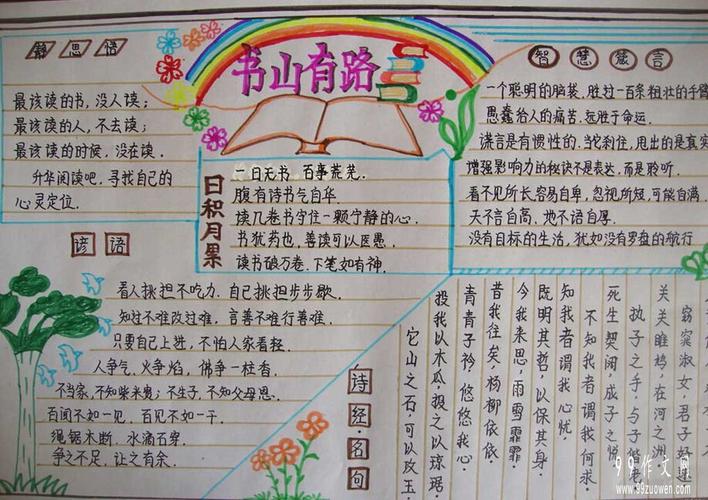 书山有路
静思语
最该读的书，没人读；
最该读的人，不去读；
最该读的时候，没在读。
升华阅读吧，寻找自己的
心灵定位。
日积月累
一日无书 百事荒芜.
腹有诗书气自华.
读几卷书守住一颗宁静的心.
书犹药也，善读可以医愚.
读书破万卷、下笔如有神.
智慧箴言
一个聪明的脑袋，胜过一百条粗壮的手臂
愚蠢给人的痛苦、远胜于命运.
谎言是有惯性的.当刹住，甩出的是真实
增强影响力的秘诀不是表达，而是聆听.
看不见所长容易自卑，忽视所短，可能自满.
天不言自高、地不语自厚.
没有目标的生活，犹如没有罗盘的航行
谚语
看人挑担不吃力.自己挑担步步歇.
知过不难改过难，言善不难行善难.
只要自己上进，不怕人家看轻.
人争气，火争焰，佛争一柱香.
不当家，不知柴米贵；不生子，不知父母恩.
百闻不如一见，百见不如一干.
绳锯木断，水滴石穿.
争之不足，让之有余.
诗经·名句
窈窕淑女，君子好逑
关关雎鸠，在河之洲
执子之手，与子偕老
死生契阔，成子之悦
不知我者谓我何求.
知我者谓我心忧
既明其哲，以保其身.
今我来思，雨雪霏霏
昔我往矣，杨柳依依.
青青子衿，悠悠我心.
投我以木瓜，投之以琼琚.
它山之石，可以攻玉
99作文网
www.99zuowen.com